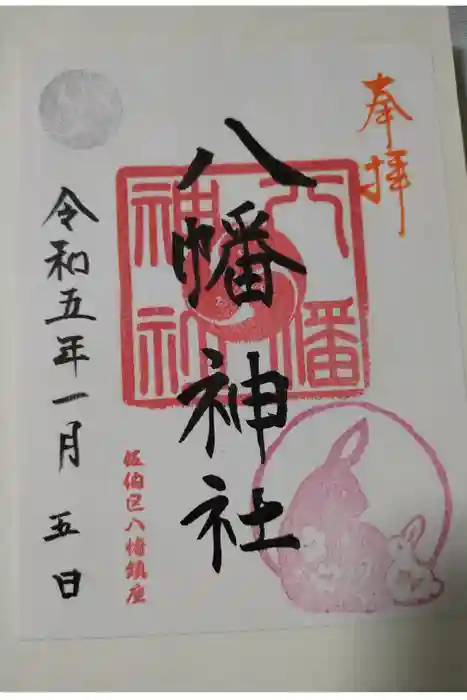 奉拝
八幡神社
八幡
神社
佐伯区八幡鎮座
令和五年一月五日